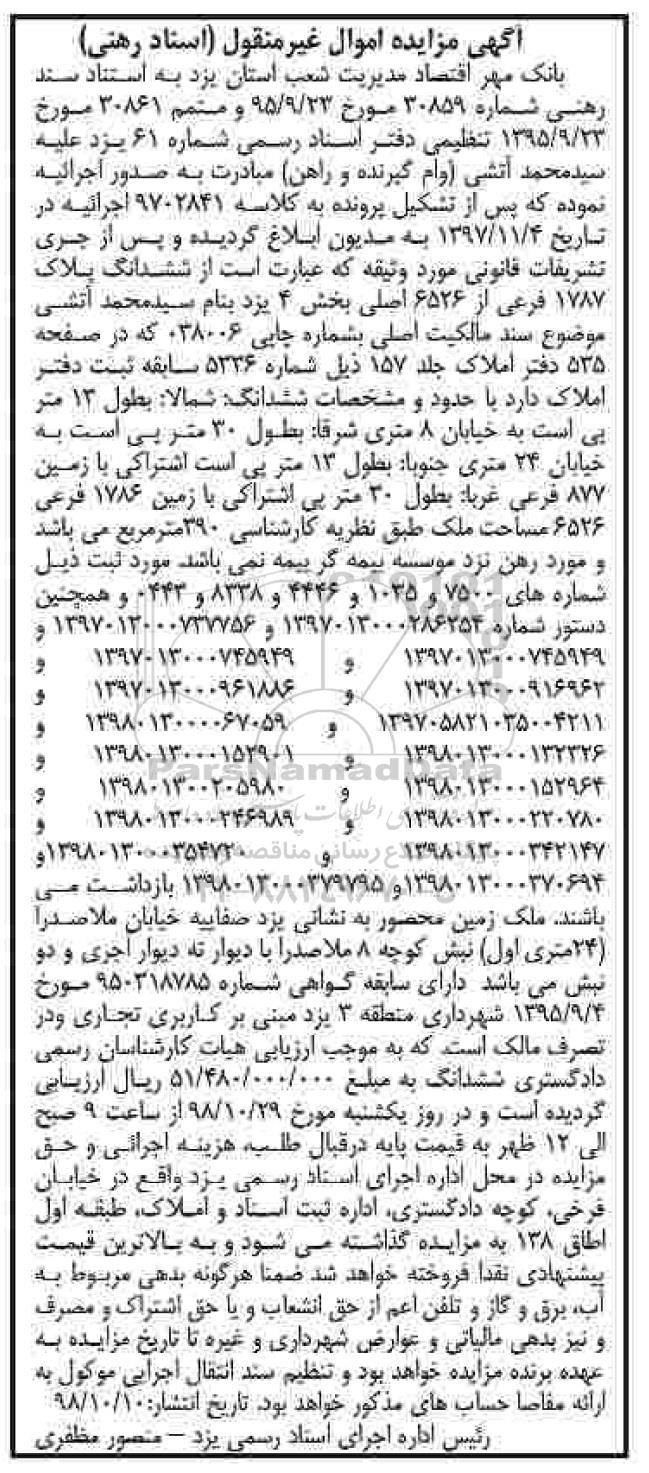 آگهی مزایده اموال غیرمنقول (اسناد رهنی)
بانک مهر اقتصاد مدیریت شعب استان یزد به استناد سند
رهنی شماره ۳۰۸۵۹ مورخ ۹۵/۹/۲۳ و متمم ۳۰۸۶۱ مورخ
۱۳۹۵/۹/۲۳ تنظیمی دفتر اسناد رسمی شماره ۶۱ یزد علیه
سیدمحمد آتشی (وام گیرنده و راهن) مبادرت به صدور اجرائیه
نموده که پس از تشکیل پرونده به کلاسه ۹۷۰۲۸۴۱ اجرائیه در
تاریخ ۱۳۹۷/۱۱/۴ به مدیون ابلاغ گردیده و پس از جری
تشریفات قانونی مورد وثیقه که عبارت است از ششدانگ پلاک
۱۷۸۷ فرعی از ۶۵۲۶ اصلی بخش ۴ یزد بنام سیدمحمد آتشی
موضوع سند مالکیت اصلی بشماره چاپی ۰۳۸۰۰۶ که در صفحه
۵۳۵ دفتر املاک جلد ۱۵۷ ذیل شماره ۵۳۳۶ سابقه ثبت دفتر
املاک دارد با حدود و مشخصات ششدانگ: شمالا: بطول ۱۳ متر
پی است به خیابان ۸ متری شرقا: بطول ۳۰ متر پی است به
خیابان ۲۴ متری جنوبا: بطول ۱۳ متر پی است اشتراکی با زمین
۸۷۷ فرعی غربا: بطول ۳۰ متر پی اشتراکی با زمین ۱۷۸۶ فرعی
۶۵۲۶ مساحت ملک طبق نظریه کارشناسی ۳۹۰مترمربع می باشد
و مورد رهن نزد موسسه بیمه گر بیمه نمی باشد. مورد ثبت ذیل
شماره های ۷۵۰۰ و ۱۰۳۵ و ۴۴۴۶ و ۸۳۳۸ و ۰۴۴۳ و همچنین
دستور شماره ۱۳۹۷۰۱۳۰۰۰۲۸۶۲۵۴ و ۱۳۹۷۰۱۳۰۰۰۷۳۷۷۵۶ و
۱۳۹۷۰۱۳۰۰۰۷۴۵۹۴۹ و ۱۳۹۷۰۱۳۰۰۰۷۴۵۹۴۹ و
۱۳۹۷۰۱۳۰۰۰۹۱۶۹۶۲ و ۱۳۹۷۰۱۳۰۰۰۹۶۱۸۸۶ و
۱۳۹۷۰۵۸۲۱۰۳۵۰۰۴۲۱۱ و ۱۳۹۸۰۱۳۰۰۰۰۶۷۰۵۹ و
۱۳۹۸۰۱۳۰۰۰۱۳۲۳۲۶ و ۱۳۹۸۰۱۳۰۰۰۱۵۲۹۰۱ و
۱۳۹۸۰۱۳۰۰۰۱۵۲۹۶۴ و ۱۳۹۸۰۱۳۰۰۰۲۰۵۹۸۰ و
۱۳۹۸۰۱۳۰۰۰۲۲۰۷۸۰ و ۱۳۹۸۰۱۳۰۰۰۲۴۶۹۸۹ و
۱۳۹۸۰۱۳۰۰۰۳۴۲۱۴۷ و ۱۳۹۸۰۱۳۰۰۰۳۵۴۷۲۰و
۱۳۹۸۰۱۳۰۰۰۳۷۰۶۹۴و ۱۳۹۸۰۱۳۰۰۰۳۷۹۷۹۵ بازداشت می
باشند. ملک زمین محصور به نشانی یزد صفاییه خیابان ملاصدرا
(۲۴متری اول) نبش کوچه ۸ ملاصدرا با دیوار ته دیوار آجری و دو
نبش می باشد دارای سابقه گواهی شماره ۹۵۰۳۱۸۷۸۵ مورخ
۱۳۹۵/۹/۴ شهرداری منطقه ۳ یزد مبنی بر کاربری تجاری ودر
تصرف مالک است. که به موجب ارزیابی هیات کارشناسان رسمی
دادگستری ششدانگ به مبلغ ۵۱/۴۸۰/۰۰۰/۰۰۰ ریال ارزیابی
گردیده است و در روز یکشنبه مورخ ۹۸/۱۰/۲۹ از ساعت ۹ صبح
الی ۱۲ ظهر به قیمت پایه درقبال طلب، هزینه اجرائی و حق
مزایده در محل اداره اجرای اسناد رسمی یزد واقع در خیابان
فرخی، کوچه دادگستری، اداره ثبت اسناد و املاک، طبقه اول
اطاق ۱۳۸ به مزایده گذاشته می شود و به بالاترین قیمت
پیشنهادی نقدا فروخته خواهد شد ضمنا هرگونه بدهی مربوط به
آب، برق و گاز و تلفن اعم از حق انشعاب و یا حق اشتراک و مصرف
و نیز بدهی مالیاتی و عوارض شهرداری و غیره تا تاریخ مزایده به
عهده برنده مزایده خواهد بود و تنظیم سند انتقال اجرایی موکول به
ارائه مفاصا حساب های مذکور خواهد بود. تاریخ انتشار: ۹۸/۱۰/۱۰
رئیس اداره اجرای اسناد رسمی یزد – منصور مظفری
ParsNamadData